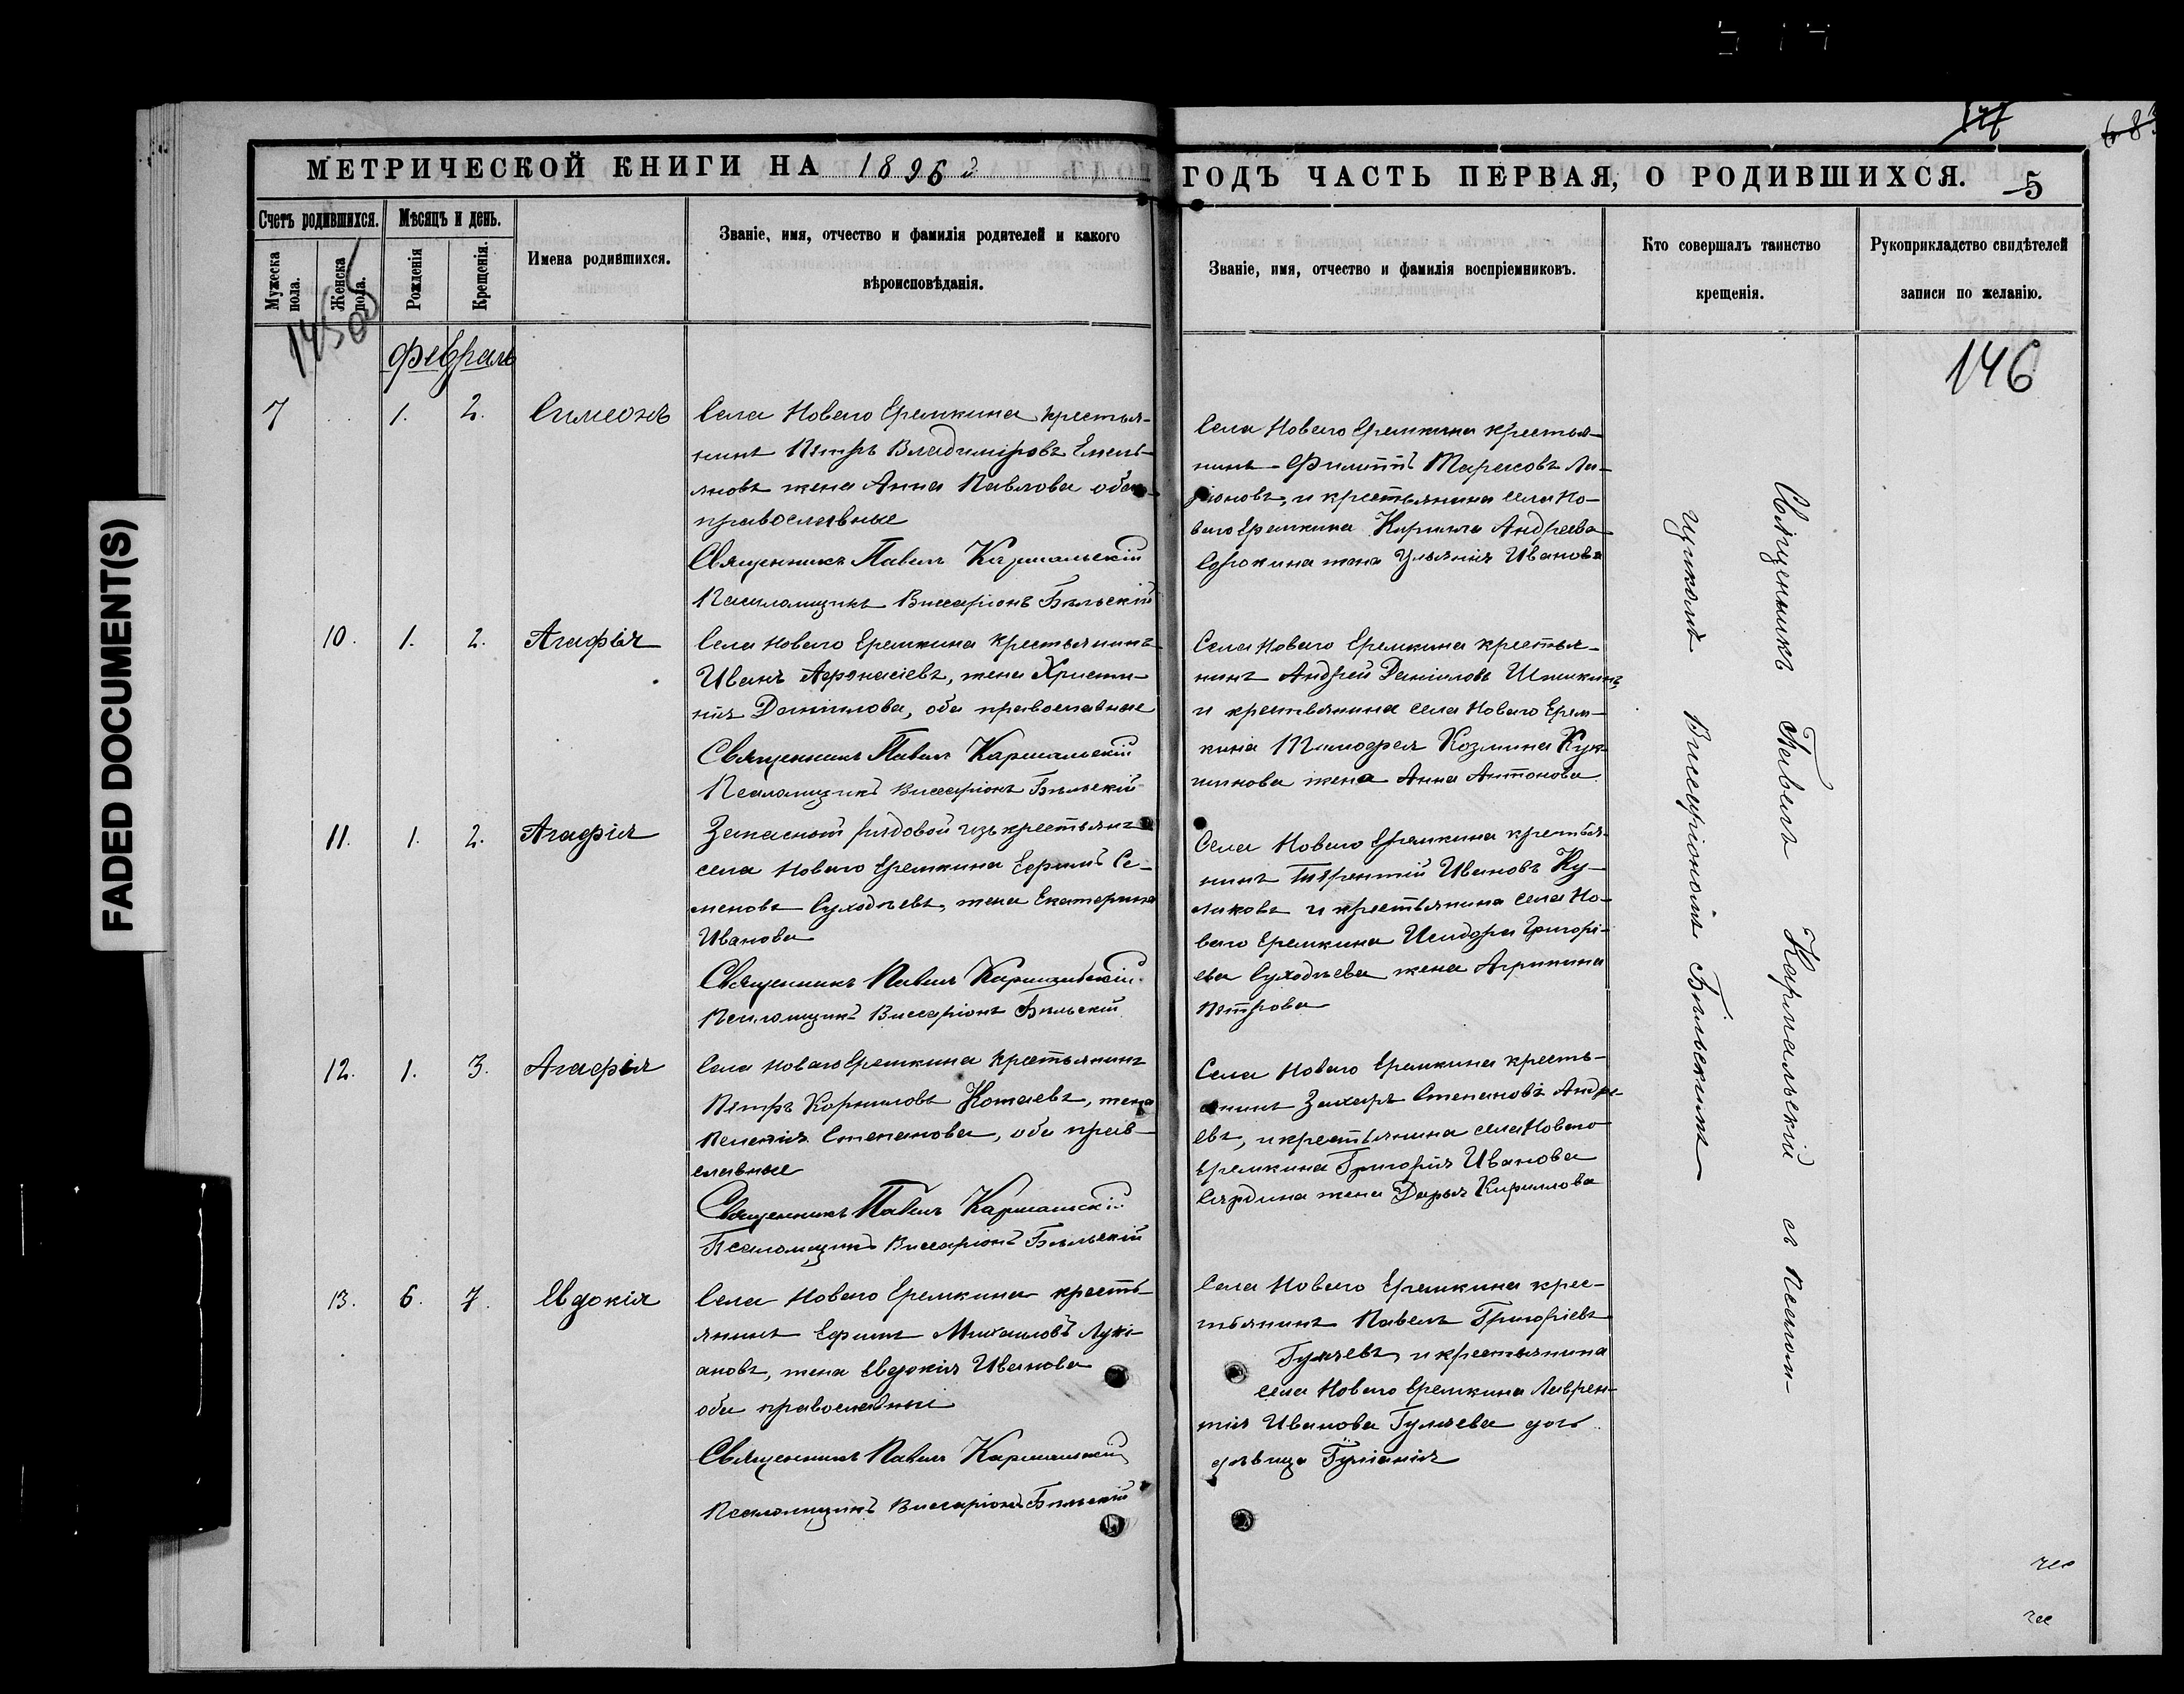 FADED DOCUMENT(S)
МЕТРИЧЕСКОЙ КНИГИ НА 1896
ГОДЪ ЧАСТЬ ПЕРВАЯ, О РОДИВШИХСЯ. 5
Счетъ родившихся.
Мужеска пола.
Женска пола.
Мѣсяцъ и день.
Рожденія
Крещенія.
Имена родившихся.
Званіе, имя, отчество и фамилія родителей и какого
вѣроисповѣданія.
Званіе, имя, отчество и фамилія воспріемниковъ.
Кто совершалъ таинство
крещенія.
Рукоприкладство свидѣтелей
записи по желанію.
146
Февраль
7 1. 2. Симеонъ
Села Новаго Еремкина крестья-
нинъ Петръ Владиміровъ Емель-
яновъ жена Анна Павлова оба
православные
Священникъ Павелъ Кармальскій
Псаломщикъ Виссаріонъ Бѣльскій
Села Новаго Еремкина крестья-
нинъ Филиппъ Тарасовъ Ла-
ріоновъ, и крестьянина села Но-
ваго Еремкина Кирилла Андреева
Сорокина жена Ульянія Иванова
10. 1. 2. Агафія
Села Новаго Еремкина крестьянинъ
Иванъ Афонасіевъ, жена Христи-
нія Даніилова, оба православные
Священникъ Павелъ Кармальскій
Псаломщикъ Виссаріонъ Бѣльскій
Села Новаго Еремкина крестья-
нинъ Андрей Даніиловъ Шишкинъ
и крестьянина села Новаго Ерем-
кина Тимофея Козмина Кук-
шинова жена Анна Антонова
11. 1. 2. Агафія
Запасной рядовой изъ крестьянъ
села Новаго Еремкина Ефимъ Се-
меновъ Суходѣевъ, жена Екатерина
Иванова
Священникъ Павелъ Кармальскій
Псаломщикъ Виссаріонъ Бѣльскій
Села Новаго Еремкина крестья-
нинъ Терентій Ивановъ Ку-
лаковъ и крестьянина села Но-
ваго Еремкина Исидора Григорі-
ева Суходѣева жена Агрипина
Петрова
12. 1. 3. Агафія
Села Новаго Еремкина крестьянинъ
Петръ Корниловъ Котаевъ, жена
Пелагія Степанова, оба прав-
славные
Священникъ Павелъ Кармальскій
Псаломщикъ Виссаріонъ Бѣльскій
Села Новаго Еремкина кресть-
янинъ Захаръ Степановъ Андре-
евъ, и крестьянина села Новаго
Еремкина Григорія Иванова
жена Дарья Кириллова
13. 6. 7. Евдокія
Села Новаго Еремкина кресть-
янинъ Ефимъ Михаиловъ Лукі-
ановъ, жена Евдокія Иванова
оба православные
Священникъ Павелъ Кармальскій
Псаломщикъ Виссаріонъ Бѣльскій
Села Новаго Еремкина крес-
тьянинъ Павелъ Григоріевъ
Гуляевъ, и крестьянина
села Новаго Еремкина Лаврен-
тія Иванова Гуляева дочь
дѣвица
Священникъ Павелъ Кармальскій съ Псалом-
щикомъ Виссаріономъ Бѣльскимъ